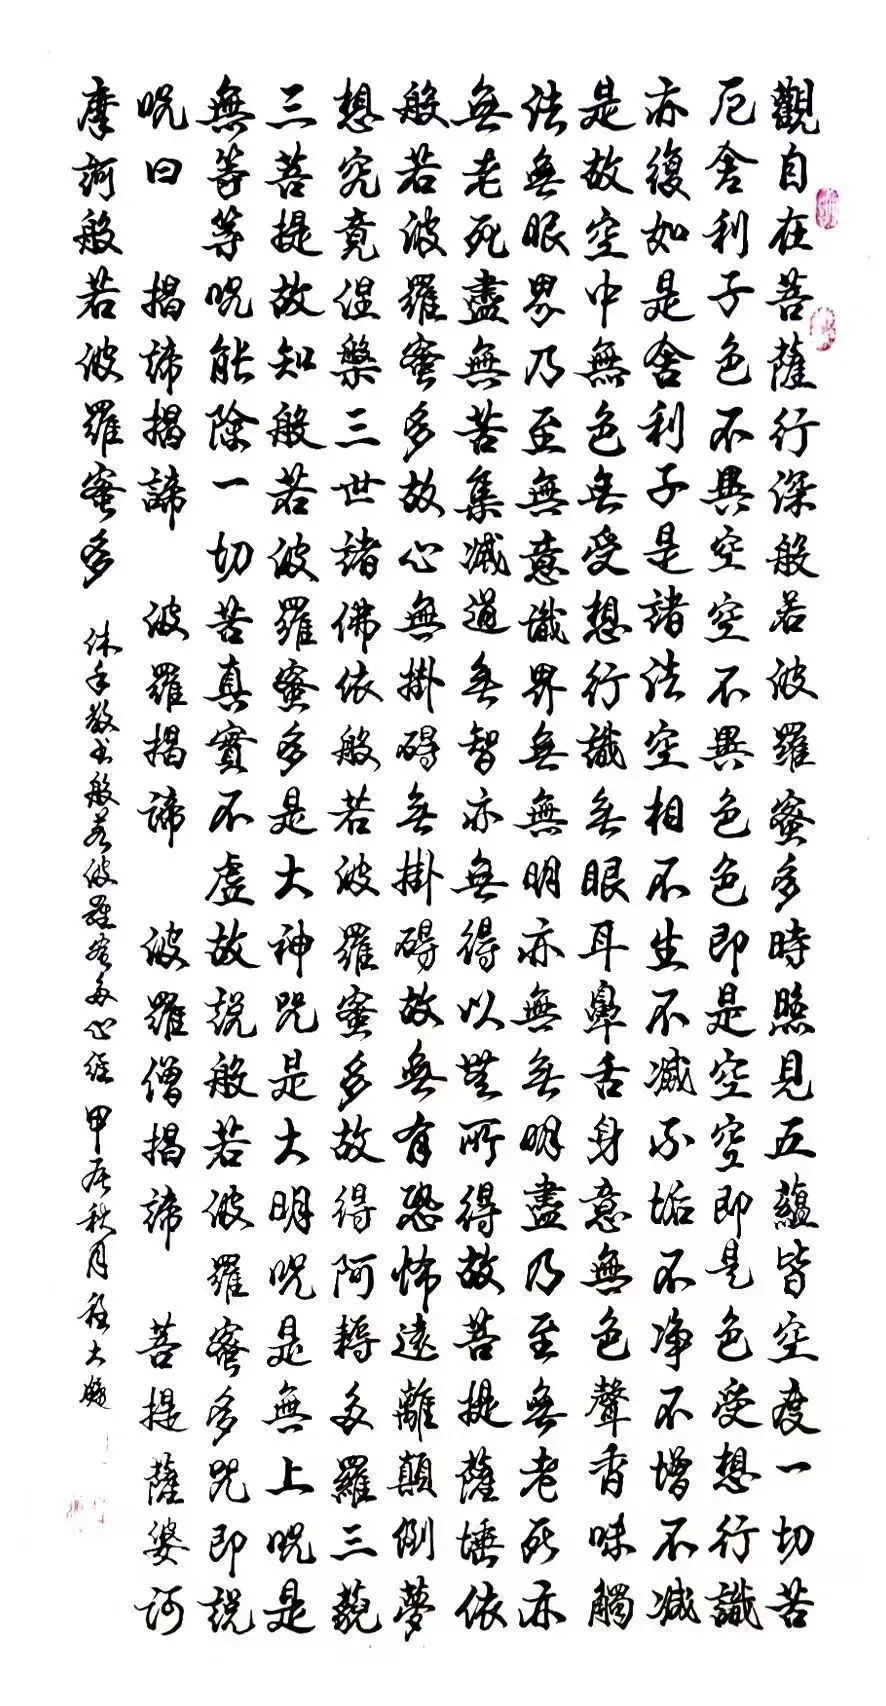 觀自在菩薩行深般若波羅蜜多時照見五蘊皆空度一切苦
厄舍利子色不異空空不異色色即是空空即是色受想行識
亦復如是舍利子是諸法空相不生不滅不垢不净不增不減
是故空中無色無受想行識無眼耳鼻舌身意無色聲香味觸
法無眼界乃至無意識界無無明亦無無明盡乃至無老死亦
無老死盡無苦集滅道無智亦無得以無所得故菩提薩埵依
般若波羅蜜多故心無掛碍無掛碍故無有恐怖遠離顛倒夢
想究竟涅槃三世諸佛依般若波羅蜜多故得阿耨多羅三藐
三菩提故知般若波羅蜜多是大神咒是大明咒是無上咒是
無等等咒能除一切苦真實不虛故說般若波羅蜜多咒即說
咒曰 揭諦揭諦 波羅揭諦 波羅僧揭諦 菩提薩婆訶
摩訶般若波羅蜜多
敬書般若波羅蜜多心經 甲辰秋月 大